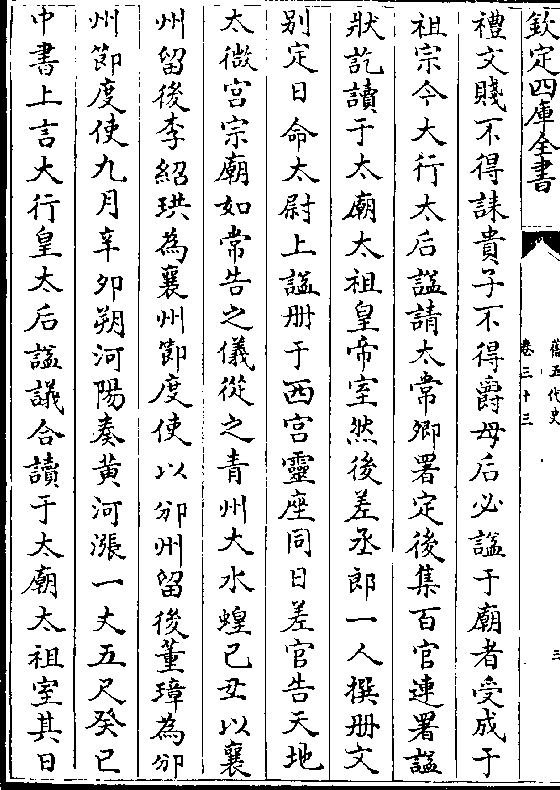 欽定四庫全書
舊五代史
卷三十三
三
禮文賤不得誄貴子不得爵母后必諡于廟者受成于
祖宗今大行太后諡請太常卿署定後集百官連署諡
狀訖讀于太廟太祖皇帝室然後差丞郎一人撰册文
别定日命太尉上諡册于西宫靈座同日差官告天地
太微宫宗廟如常告之儀從之青州大水蝗己丑以襄
州留後李紹珙為襄州節度使以邠州留後董璋為邠
州節度使九月辛卯朔河陽奏黄河漲一丈五尺癸巳
中書上言大行皇太后諡議合讀于太廟太祖室其日